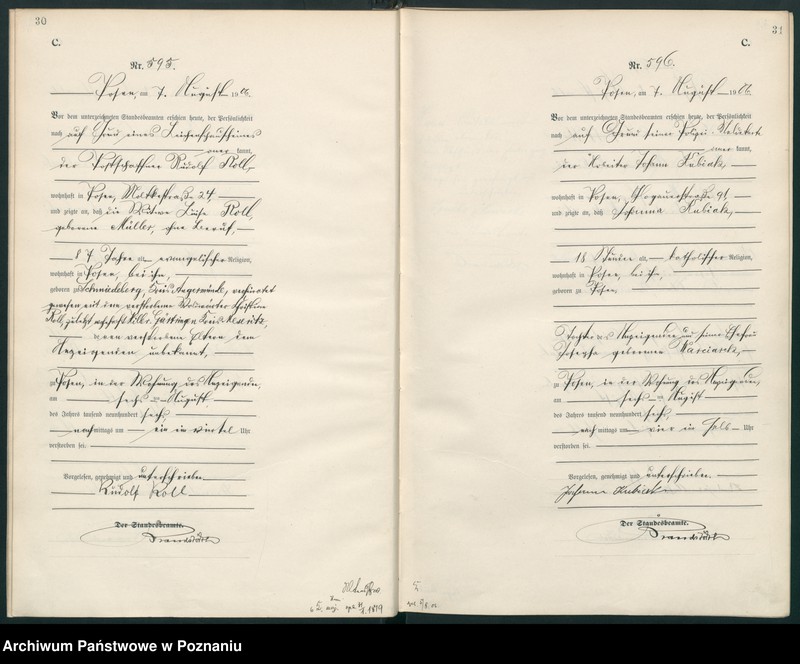 30
C.
Nr. 595.
Posen, am 7. August 1906.
Vor dem unterzeichneten Standesbeamten erschien heute, der Persönlichkeit
nach auf Grund eines Leichenschauscheines
kannt,
der Postschaffner Rudolf Roll,
wohnhaft in Posen, Moltkestraße 24,
und zeigte an, daß die Witwe Luise Roll,
geborene Müller, ohne Beruf,
87 Jahre alt, evangelischer Religion,
wohnhaft in Posen, bei ihm,
geboren zu Schmiedeberg, Kreis Angermünde, verheiratet
gewesen mit dem verstorbenen Christian
Roll, zuletzt wohnhaft Kreis Meseritz,
Eltern dem
Anzeigenden unbekannt,
zu Posen, in der Wohnung des Anzeigenden,
am sechsten August
des Jahres tausend neunhundert sechs
nachmittags um ein ein viertel Uhr
verstorben sei.
Vorgelesen, genehmigt und unterschrieben
Rudolf Roll
Der Standesbeamte.
31
C.
Nr. 596.
Posen, am 7. August 1906.
Vor dem unterzeichneten Standesbeamten erschien heute, der Persönlichkeit
nach auf Grund seiner Polizei-Meldekarte
kannt,
der Arbeiter Johann Kubiak
wohnhaft in Posen, Glogauerstraße 91,
und zeigte an, daß Johanna Kubiak,
18 Stunden alt, katholischer Religion,
wohnhaft in Posen, bei ihm,
geboren zu Posen,
Tochter des Anzeigenden und seiner Ehefrau
Josepha geborenen
zu Posen, in der Wohnung des Anzeigenden,
am sechsten August
des Jahres tausend neunhundert sechs
nachmittags um vier ein halb Uhr
verstorben sei.
Vorgelesen, genehmigt und unterschrieben
Johann Kubiak
Der Standesbeamte.
Archiwum Państwowe w Poznaniu